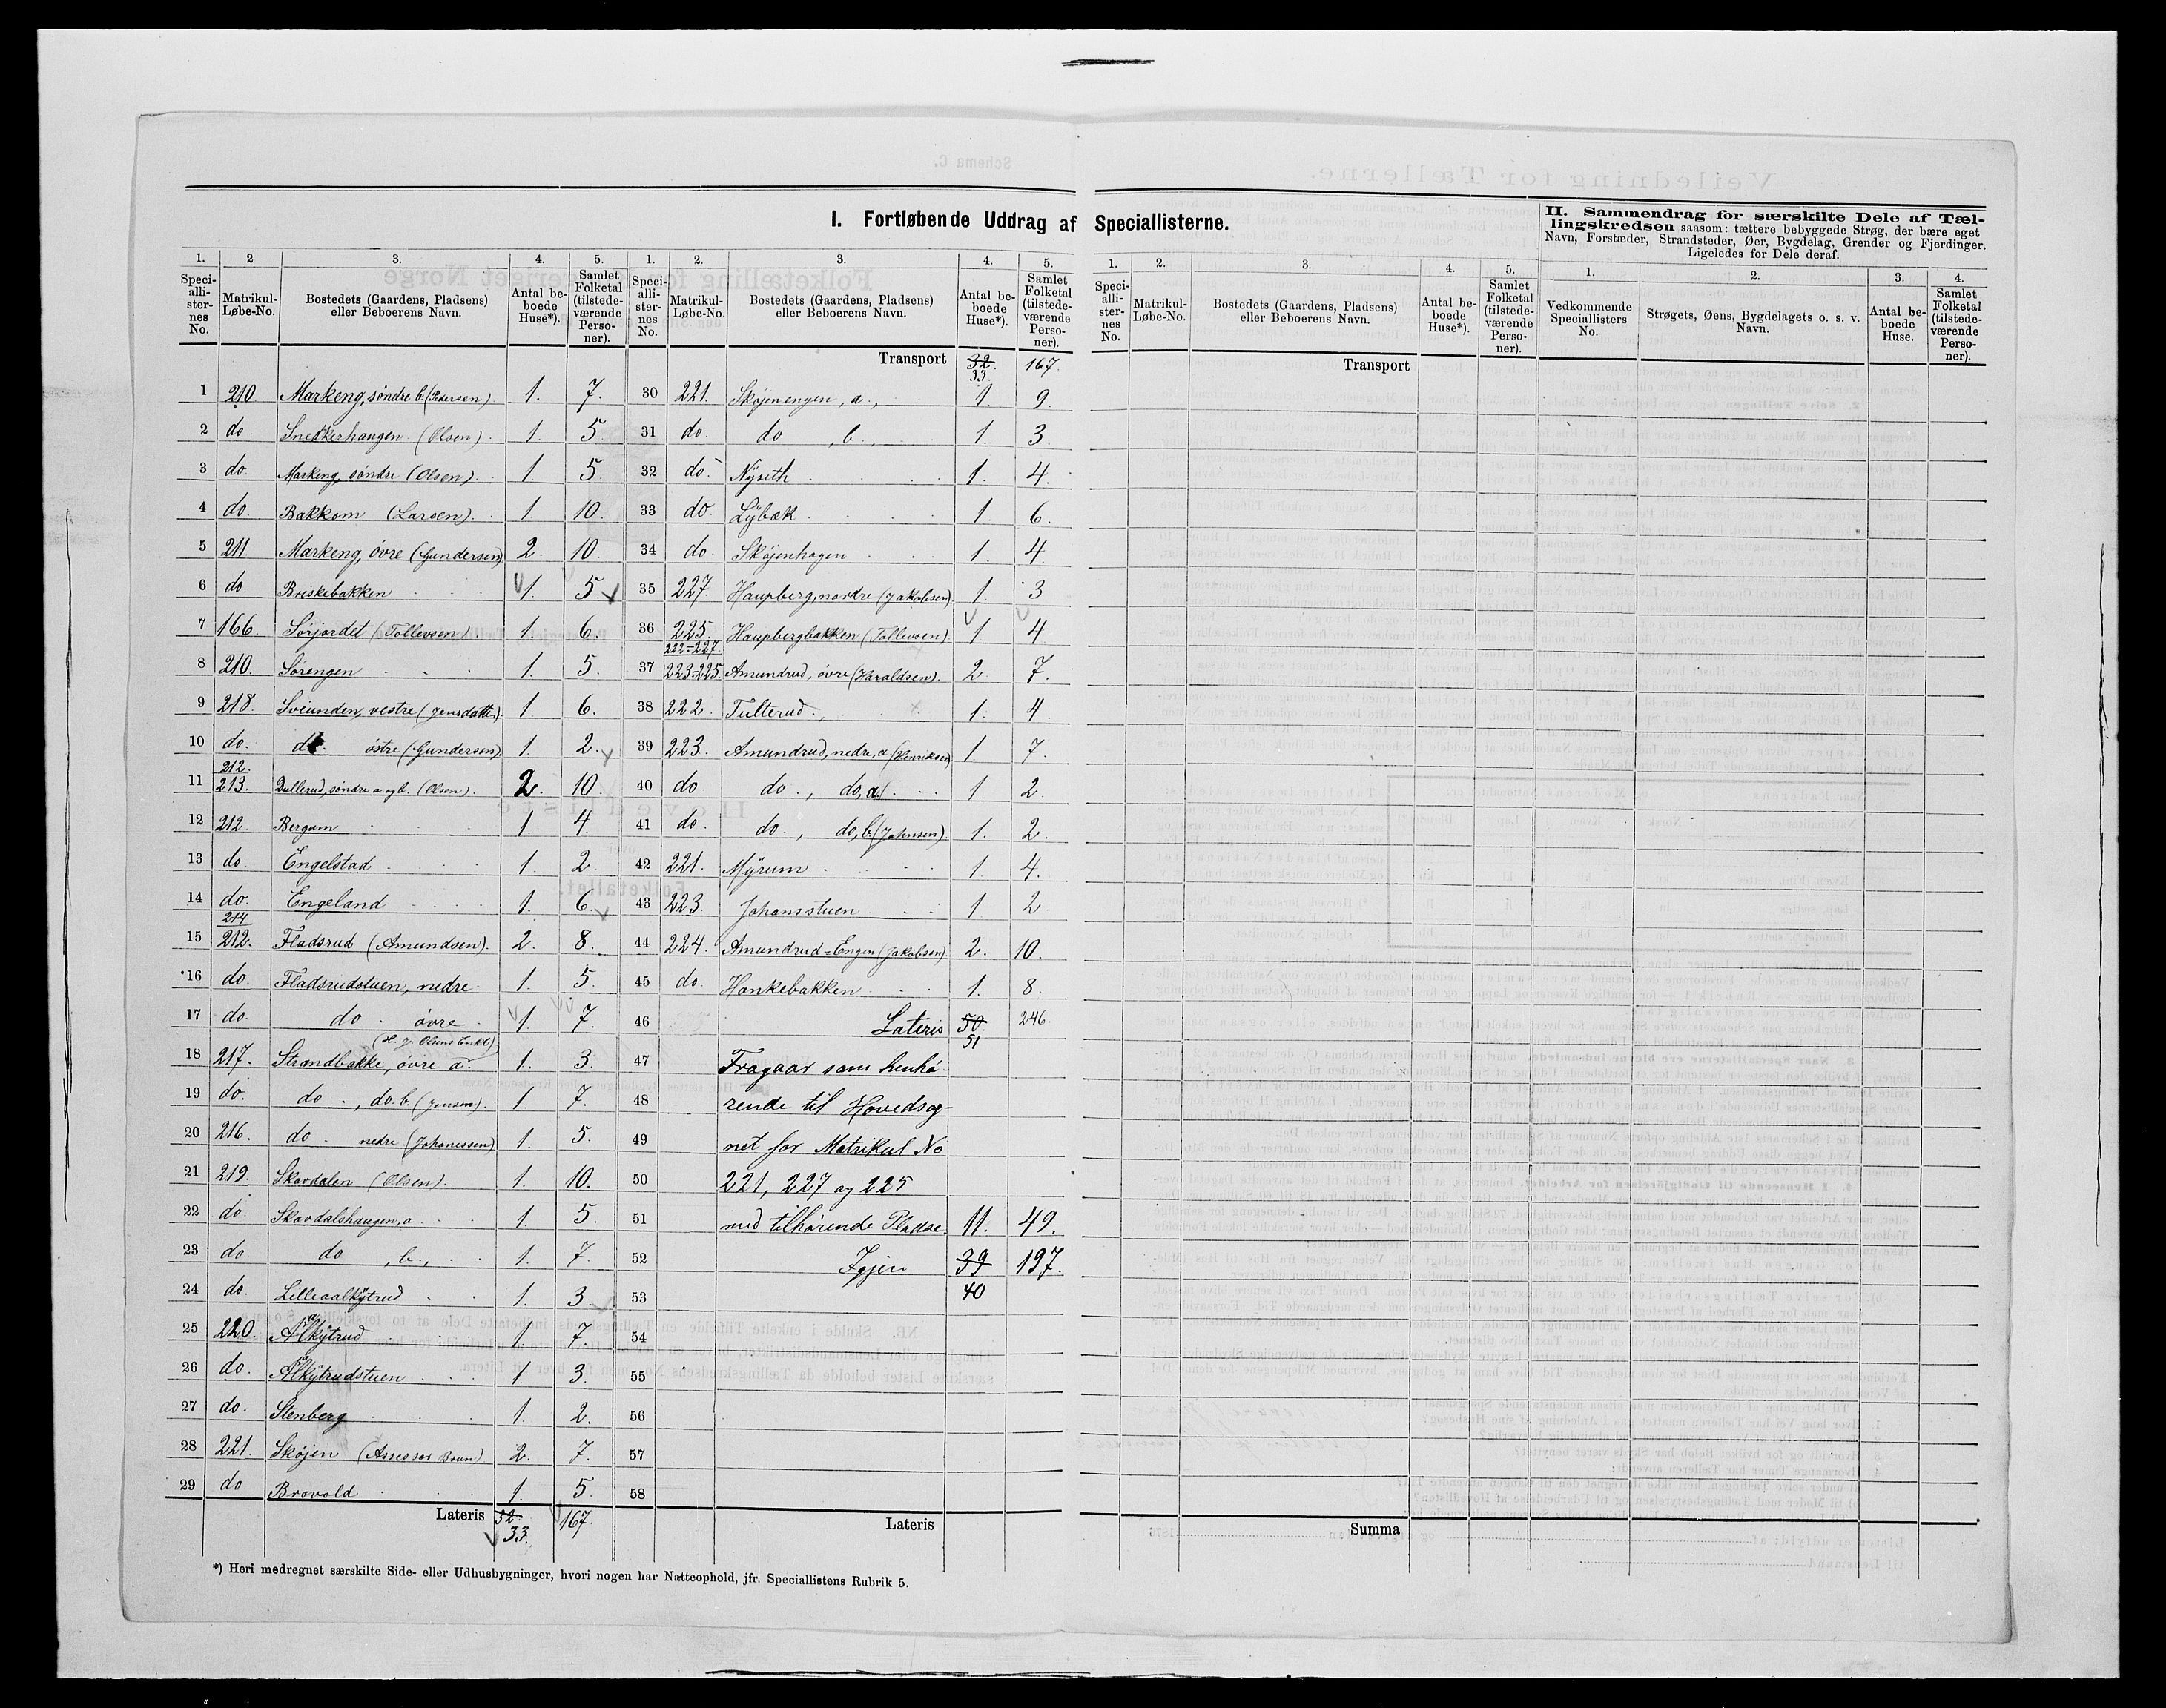 I. Fortløbende Uddrag af Speciallisterne.
1. 2 3. 4. 5.
Speciallisternes No. Matrikul-Løbe-No. Bostedets (Gaardens, Pladsens) eller Beboerens Navn. Antal beboede Huse*). Samlet Folketal (tilstedeværende Personer).
1 210. Markeng, søndre b. (Pedersen) 1. 7.
2 do. Snedkerhaugen (Olsen). 1. 5
3 do. Markeng, søndre (Olsen). 1 5.
4 do. Bakkom (Larsen). 1. 10.
5 211. Markeng, övre (Gundersen) 2. 10.
6 do. Briskebakken 1. 5.
7 166. Sörjordet (Tollevsen) 1. 6.
8 210. Sörengen 1. 5.
9 218. Sviunden, vestre (Jensdatter) 1 6.
10 do. do. östre (Gundersen) 1. 2.
212.
11 213. Dullerud, söndre a og b. (Olsen). 2. 10.
12 212. Bergum 1 4.
13 do. Engelstad 1. 2
14 do. Engeland 1. 6.
214
15 212. Fladsrud (Amundsen). 2. 8.
16 do Fladsrudstuen, nedre 1. 5.
17 do. do. övre 1. 7.
18 217. Strandbakke, övre a. 1. 3.
19 do. do., do. b. (Jensen). 1. 7.
20 216. do. nedre (Johanessen) 1. 5.
21 219. Skavdalen (Olsen). 1. 10.
22 do. Skavdalshaugen, a. 1. 5.
23 do. do, b., 1. 7.
24 do. Lilleaalkytrud 1. 3.
25 220. Alkytrud 1. 7.
26 do. Alkytrudstuen 1. 3.
27 do. Stenberg 1. 2.
28 221. Sköjen (Assessor Boun) 2. 7.
29 do Brovold 1. 5.
Lateris 32. 167.
33.
*) Heri medregnet særskilte Side- eller Udhusbygninger, hvori nogen har Natteophold, jfr. Speciallistens Rubrik 5.
1. 2. 3. 4. 5.
Speciallisternes No. Matrikul-Løbe-No. Bostedets (Gaardens, Pladsens) eller Beboerens Navn. Antal beboede Huse*). Samlet Folketal (tilstedeværende Personer).
Transport 32. 167.
33.
30 221. Sköjenengen, a., 1. 9.
31 do. do, b., 1. 3.
32 do. Nyseth 1. 4.
33 do. Lybæk 1. 6.
34 do. Sköjenhagen 1. 4.
35 227. Haupberg, nordre (Jakobsen) 1. 3
36 225. Haupbergbakken (Tollevsen) 1. 4
222-227
37 223-225. Amundrud, övre (Haraldsen). 2. 7.
38 222. Tulterud., 1. 4
39 223. Amundrud, nedre, a (Henriksen) 1 7.
40 do do., do, a 1 2.
41 do. do., do, b. (Johnsen) 1. 2.
42 221. Myrum 1. 4.
43 223. Johansstuen 1. 2.
44 224. Amundrud-Engen (Jakobsen) 2. 10.
45 do. Honkebakken 1. 8.
46 Lateris 50. 246.
51
47 Fragaar som henhö-
48 rende til Hovedsog-
49 net for Matrikul No
50 221, 227 og 225
51 med tilhörende Pladse. 11. 49.
52 Igjen 39 197.
53 40
54
55
56
57
58
Lateris
1. 2. 3. 4. 5.
Speciallisternes No. Matrikul-Løbe-No. Bostedets (Gaardens, Pladsens) eller Beboerens Navn. Antal beboede Huse*). Samlet Folketal (tilstedeværende Personer).
Transport
Summa
II. Sammendrag for særskilte Dele af Tæl-
lingskredsen saasom: tættere bebyggede Strøg, der bære eget
Navn, Forstæder, Strandsteder, Øer, Bygdelag, Grender og Fjerdinger.
Ligeledes for Dele deraf.
1. 2. 3. 4.
Vedkommende Speciallisters No. Strøgets, Øens, Bygdelagets o. s. v. Navn. Antal beboede Huse. Samlet Folketal (tilstedeværende Personer).